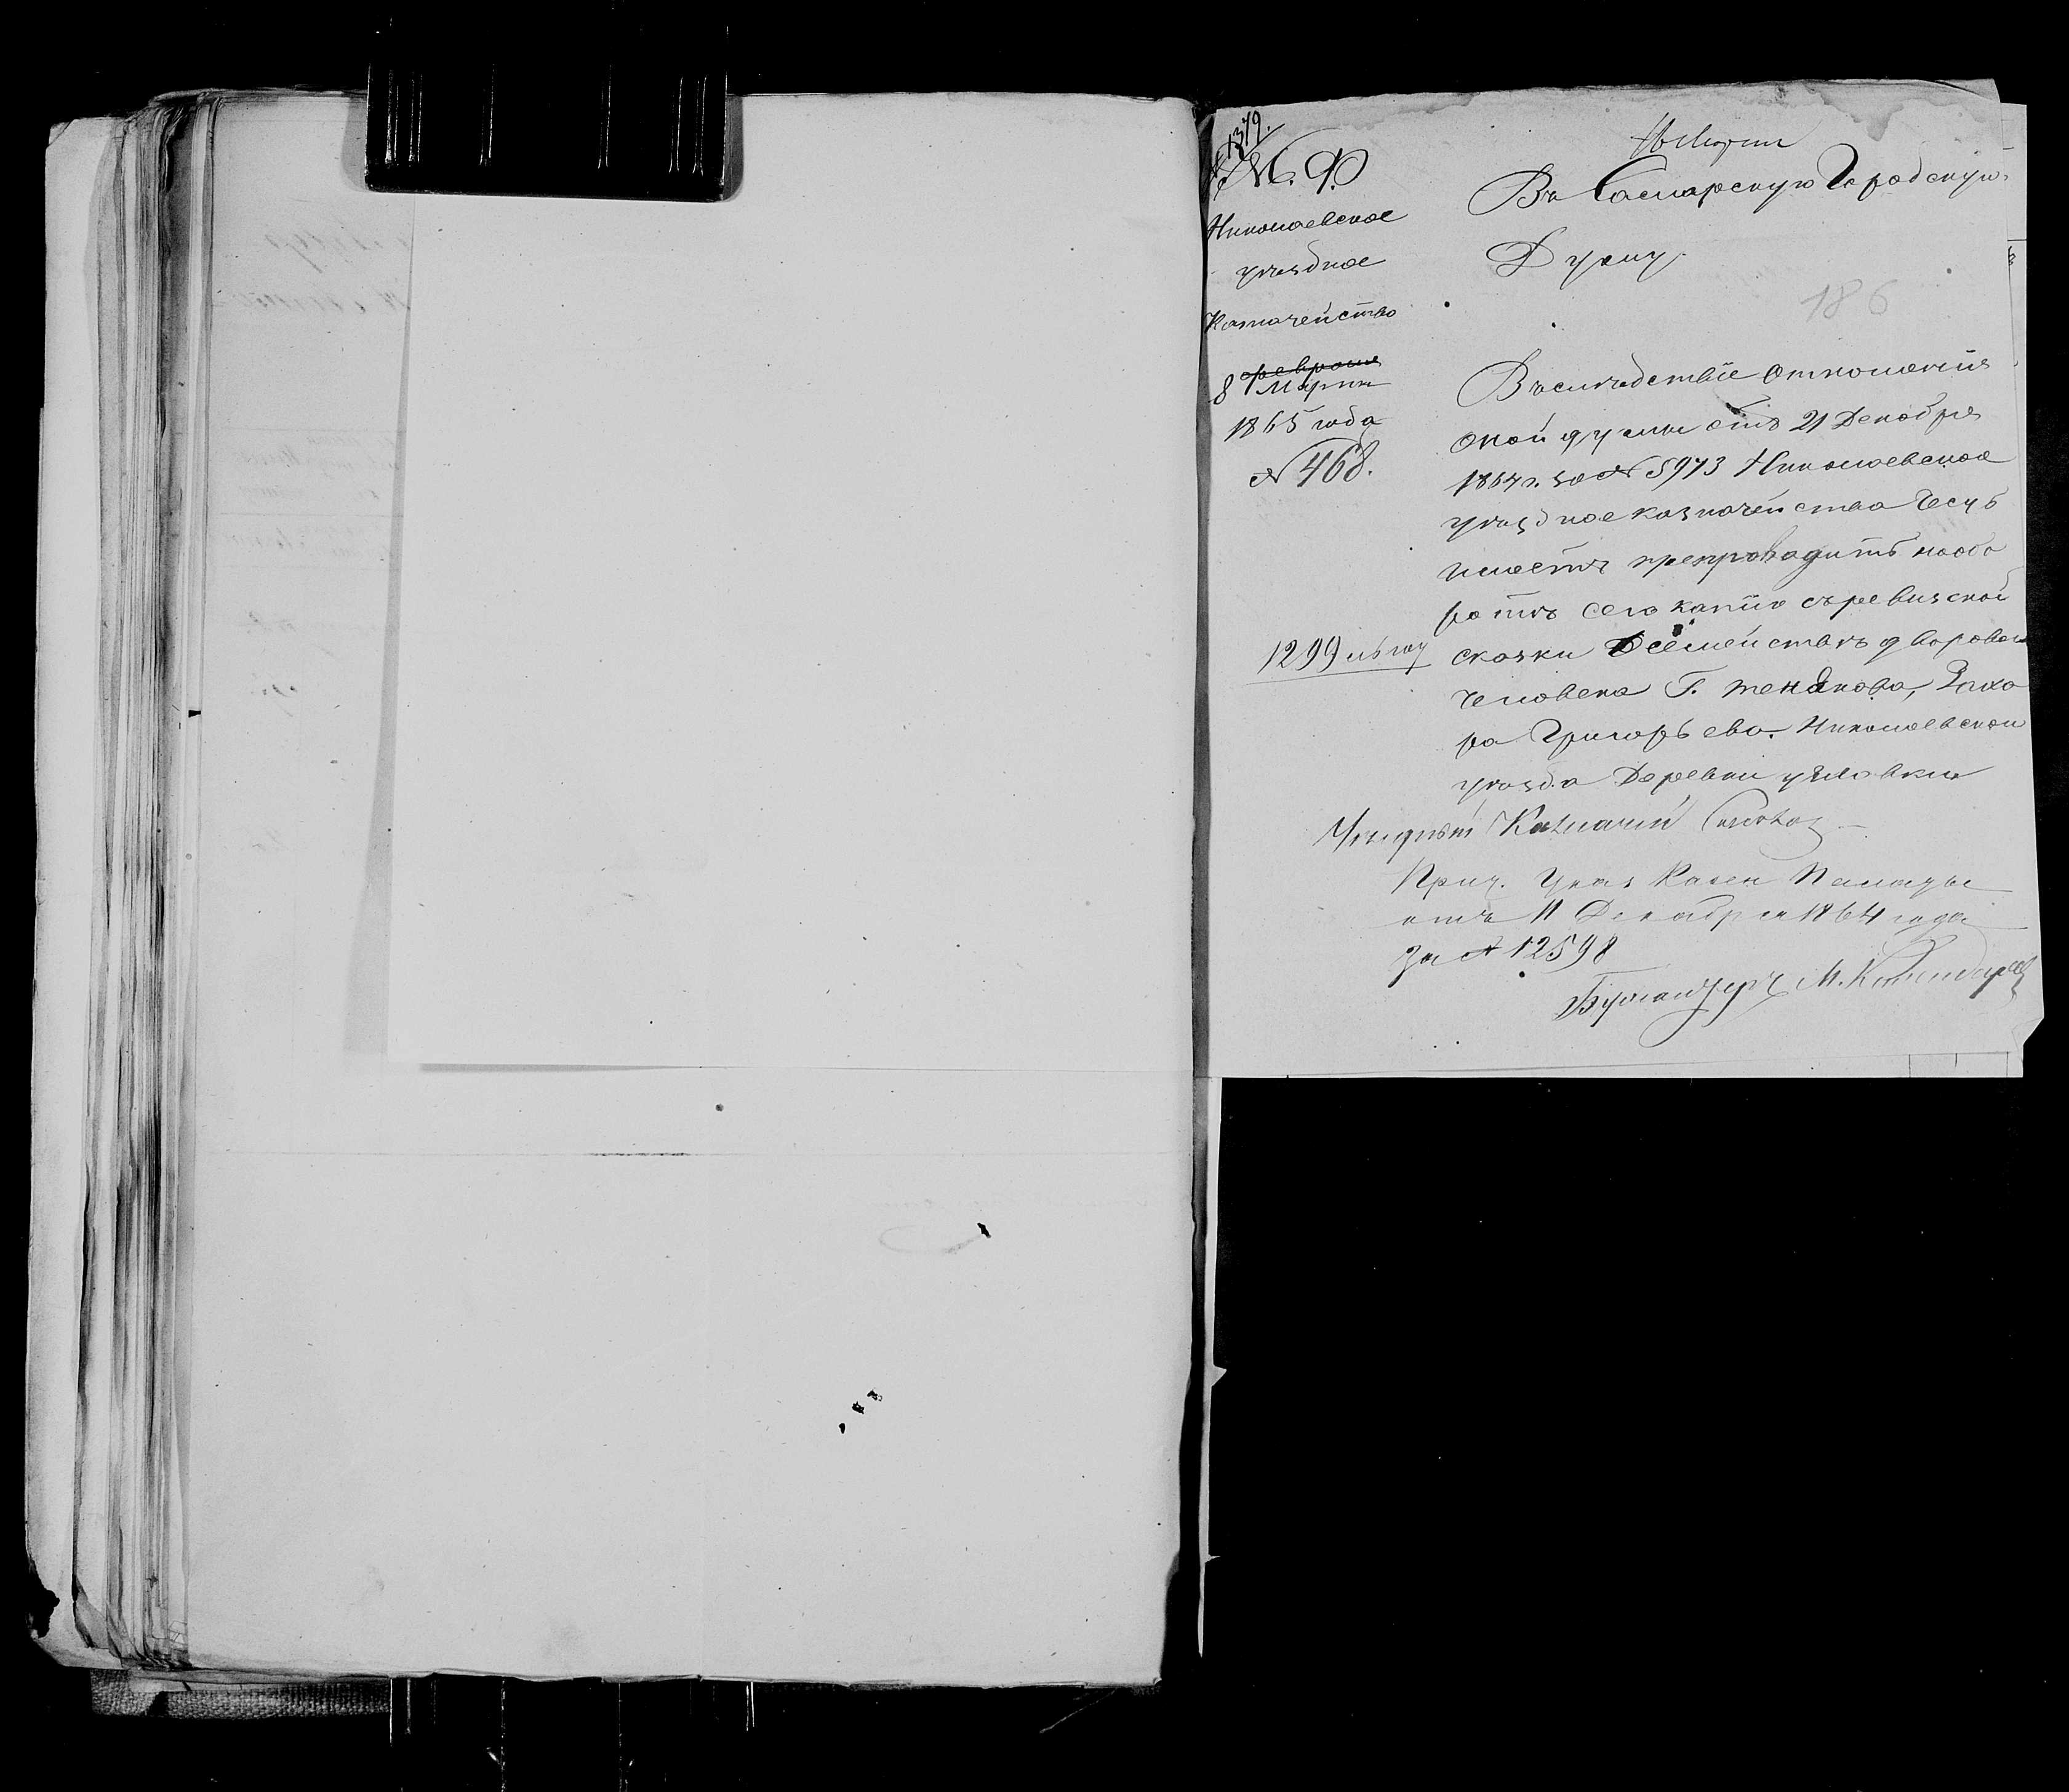 № 1379.
М. Ф.
Николаевское
уѣздное
Казначейство
8 февраля
Марта
1865 года
№ 468.
1299
Марта
Въ Самарскую Городскую
Думу
186
Въслѣдствіе отношенія
оной думы отъ 21 Декабря
1864 г. за № 5973 Николаевское
уѣздное казначейства Честь
имѣетъ препроводить наобо
ротъ сего капію съревизской
сказки Осѣмействѣ дворова
человека Г. Заха
ра Григорьева. Николаевскои
уѣзда Деревни
Уѣздный Казначей
Прич. Указ Казен Палаты
отъ 11 Декабря 1864 года
За № 12598
Бухгалтеръ М.